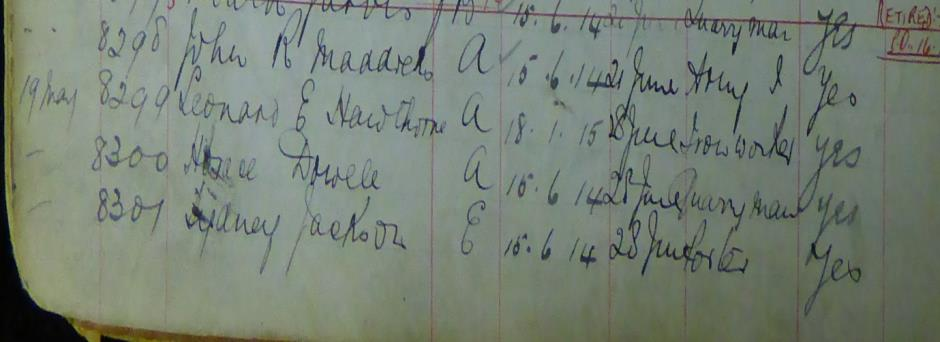 15.6.14 Quarryman yes
RETIRED
8298 John R Maddocks A 15.6.14 21 June Army Yes
19 May 8299 Leonard E Hawthorne A 18.1.15 28 June Ironworker yes
8300 Dowell A 15.6.14 28 June Quarryman yes
8301 Sydney Jackson E 15.6.14 28 June Porter Yes